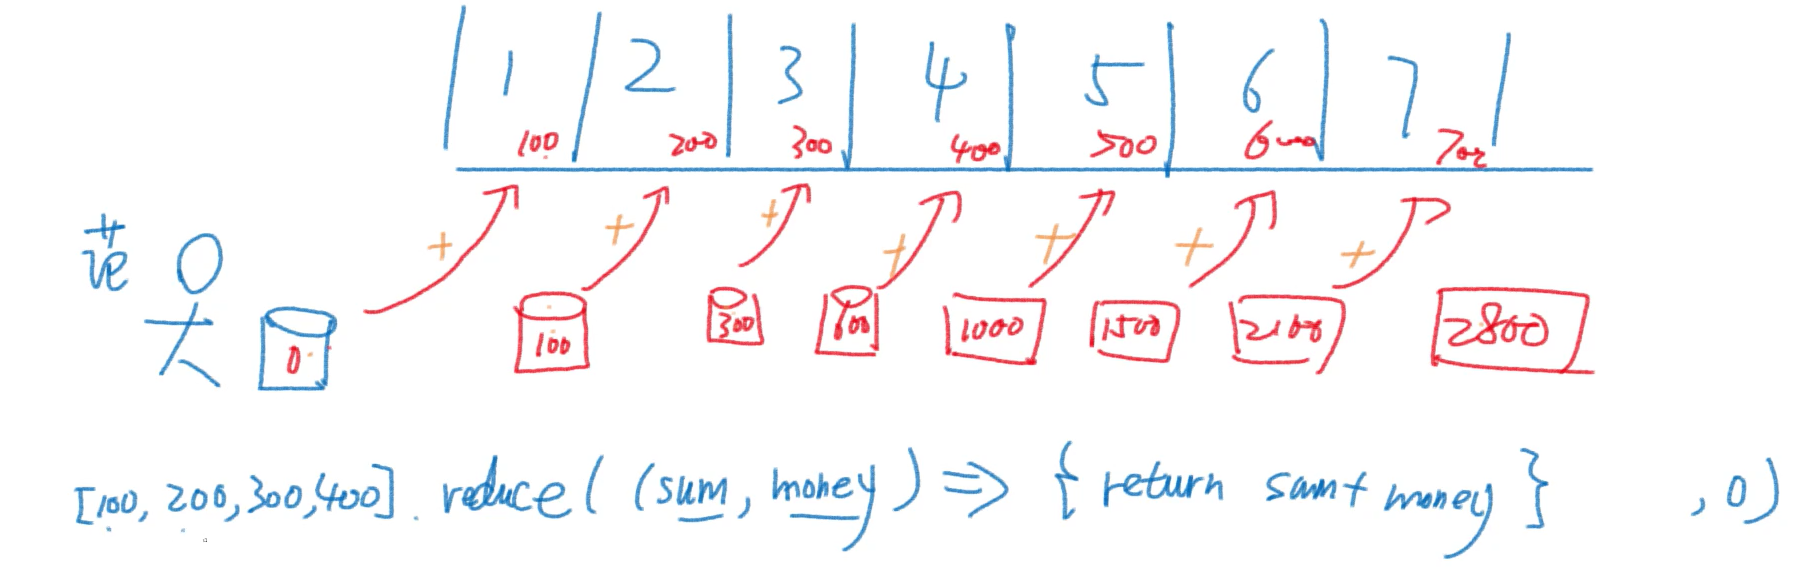 1 2 3 4 5 6 7
100 200 300 400 500 600 700
+ + + + + + +
0 100 300 600 1000 1500 2100 2800
[100, 200,300,400]. reduce( (sum, money) => { return sum+ money } , 0)